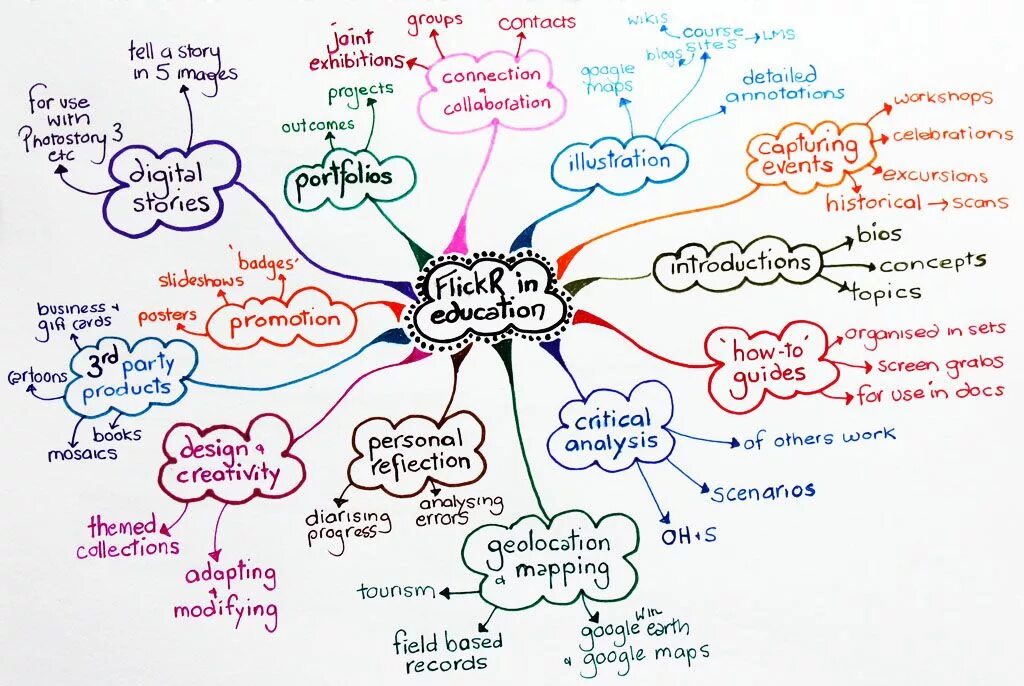 FlickR in
education
connection
&
collaboration
joint
exhibitions
groups
contacts
illustration
google
maps
wikis
blogs
course
sites
LMS
detailed
annotations
capturing
events
workshops
celebrations
excursions
historical → scans
introductions
bios
concepts
topics
'how-to'
guides
organised in sets
screen grabs
for use in docs
critical
analysis
of others work
scenarios
OH+S
geolocation
& mapping
tourism
field based
records
with
google earth
& google maps
personal
reflection
diarising
progress
analysing
errors
design &
creativity
themed
collections
adapting
&
modifying
3rd party
products
business +
gift cards
cartoons
mosaics
books
promotion
posters
slideshows
'badges'
digital
stories
for use
with
Photostory 3
etc
tell a story
in 5 images
portfolios
outcomes
projects